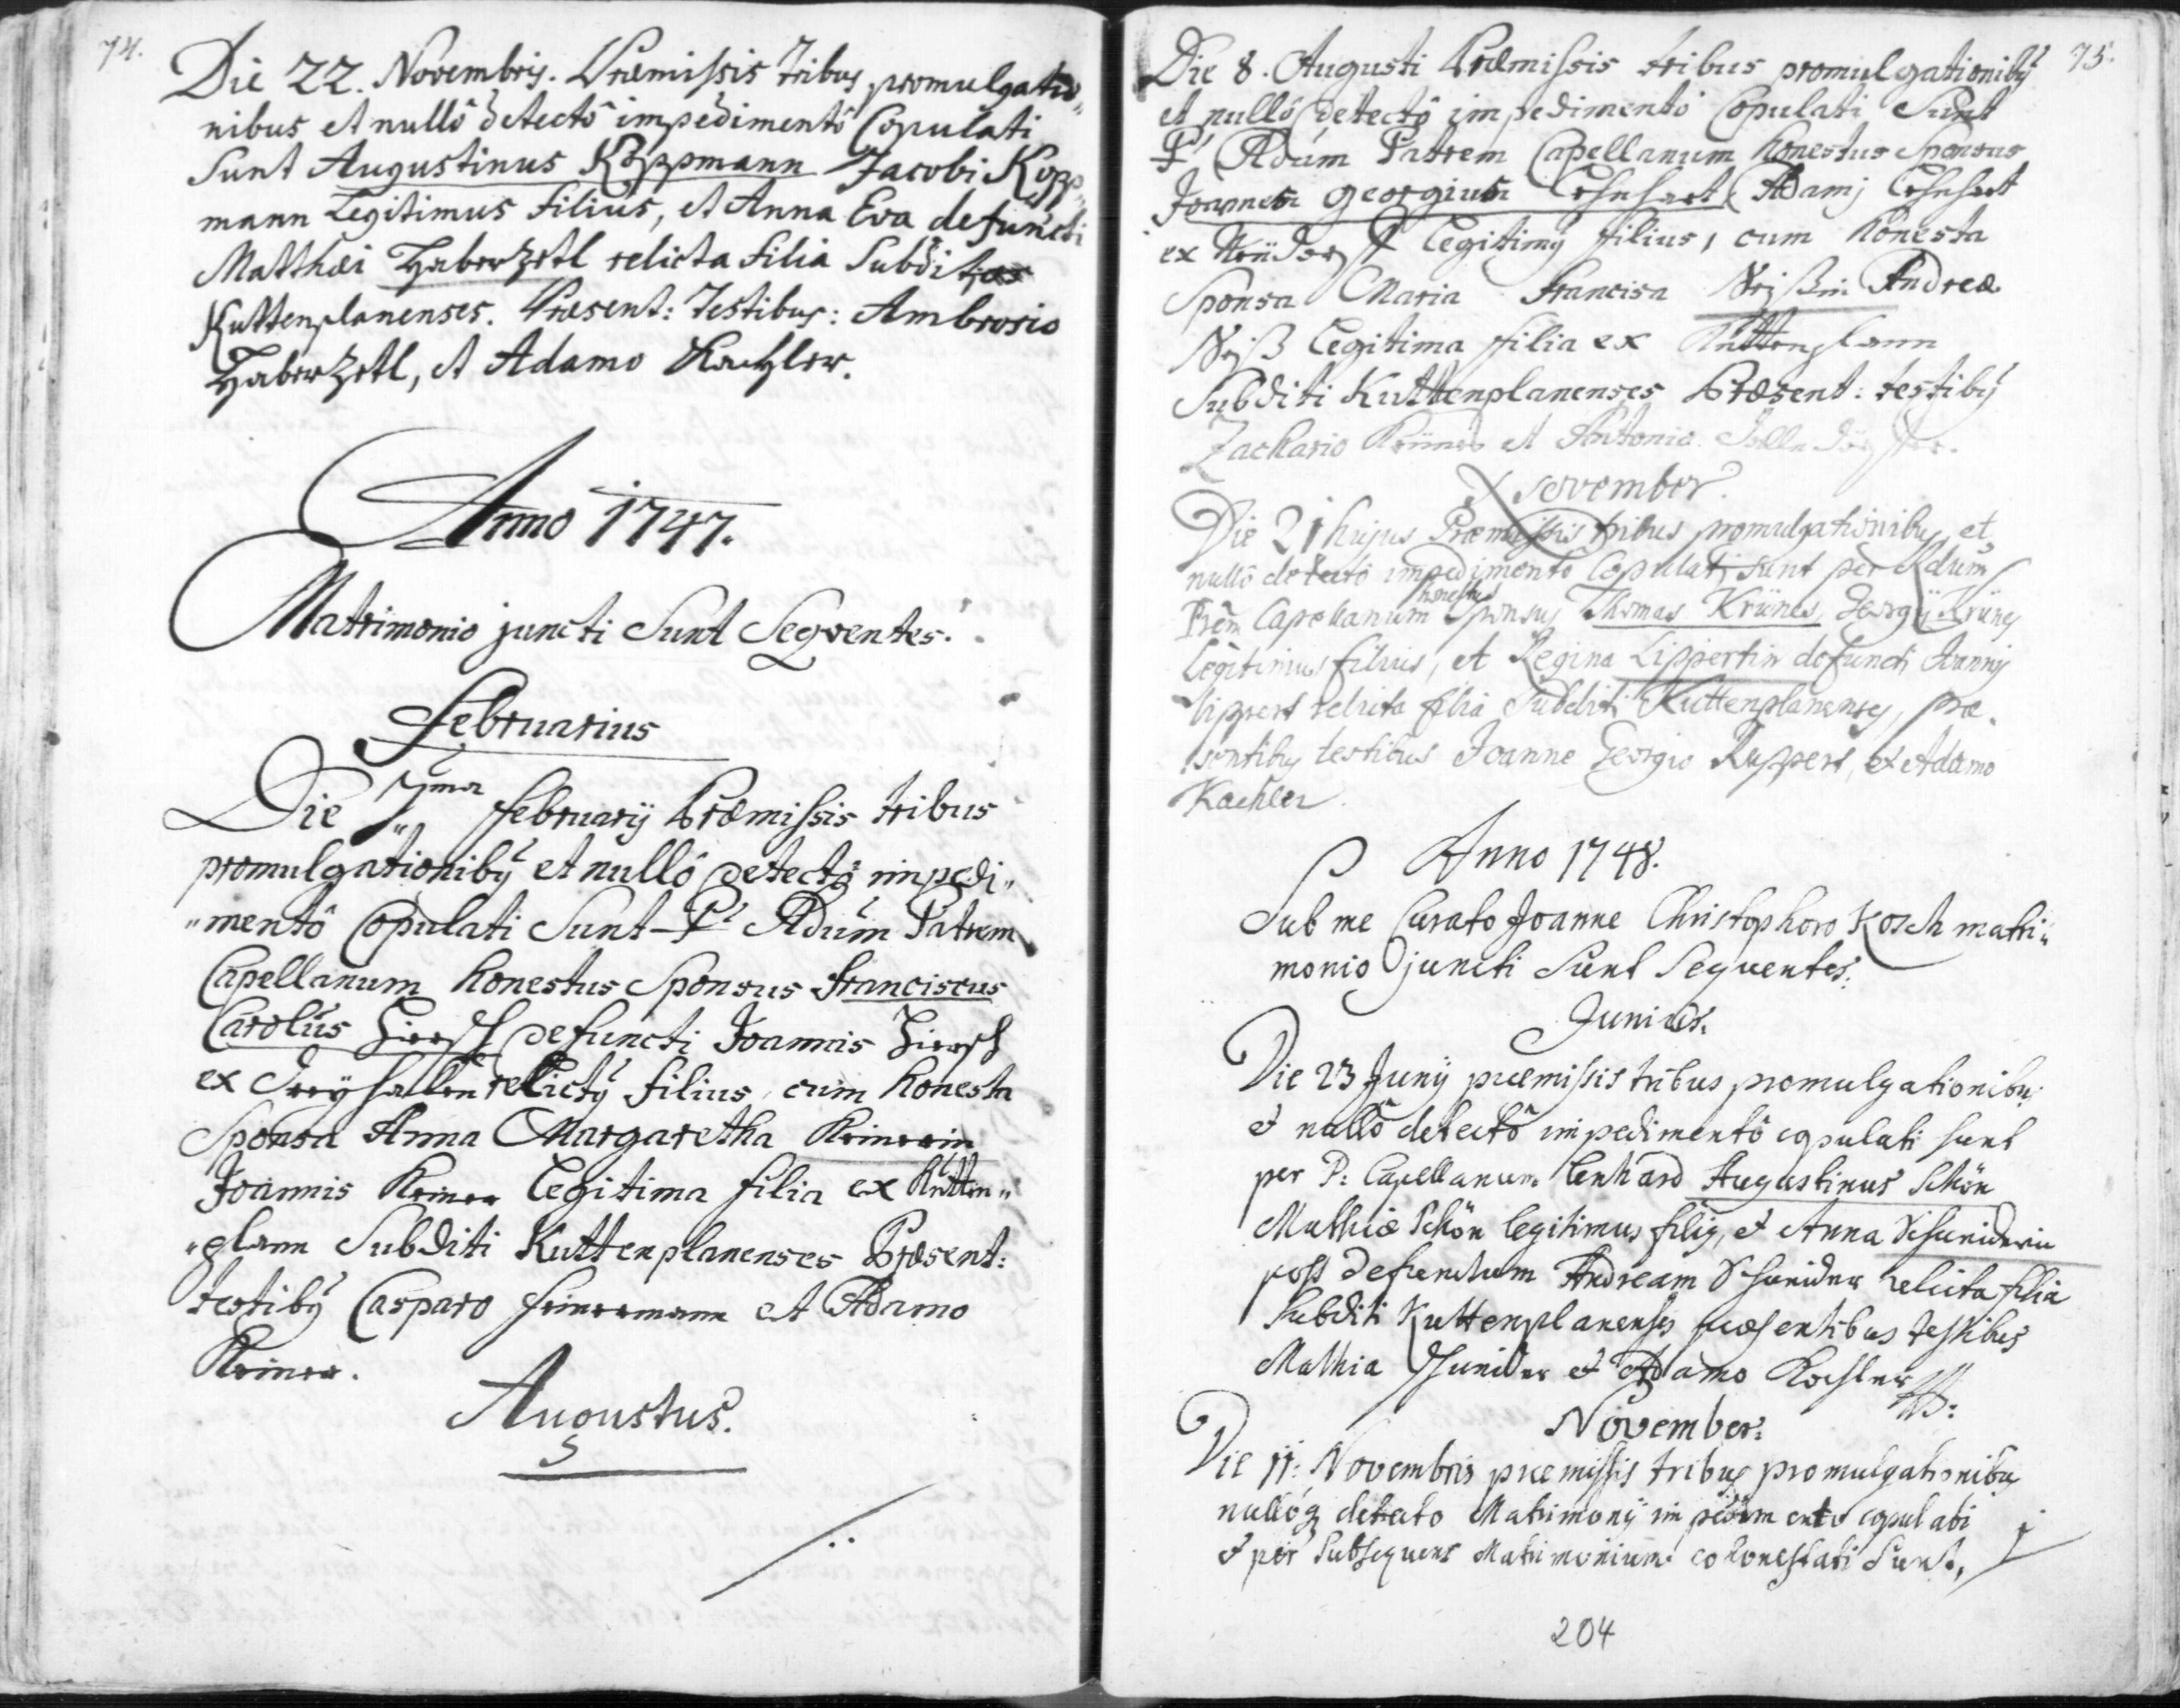 74.
Die 22. Novembris. Præmissis tribus promulgatio„
nibus et nullô detectô impedimentô Copulati
Sunt Augustinus Koppmann Jacobi Kopp„
mann Legitimus filius, et Anna Eva defuncti
Matthæi Haberzetl relicta filia Subditi
Kuttenplanenses. Præsent: Testibus: Ambrosio
Haberzetl, et Adamo Kachler.
Anno 1747.
Matrimonio juncti Sunt Seqventes.
Februarius
Die 7ma Februarij Præmissis tribus
promulgationibȝ et nullô detectô impedi„
„mentô Copulati Sunt Pr Adum Patrem
Capellanum honestus Sponsus Franciscus
Carolus Hirsch defuncti Joannis Hirsch
ex relictȝ filius, cum honesta
Sponsa Anna Margaretha
Joannis Legitima filia ex Kutten„
„plann Subditi Kuttenplanenses Præsent:
testibȝ Casparo et Adamo
Augustus.
75.
Die 8. Augusti Præmissis tribus promulgationibȝ
et nullô detectô impedimentô Copulati Sunt
Pr Adum Patrem Capellanum honestus Sponsus
Joannes Georgius Lehnhart Adamj Lehnhart
ex Legitimȝ filius, cum honesta
Sponsa Maria Francisca Andreæ
Legitima filia ex Kuttenplann
Subditi Kuttenplanenses Præsent: testibȝ
Zachario et Antonio
November.
Die 21 hujus Præmissis tribus promulgationibȝ et
nullô detectô impedimento Copulatj sunt per Adum
Prem Capellanum honestus Sponsus Thomas Krünes Georgij Krünes
legitimus filius, et Regina Lippertin defuncti Joannis
Lippert relicta filia Subditi Kuttenplanenses, præ„
sentibȝ testibus Joanne Georgio Ruppert, et Adamo
Kachler.
Anno 1748.
Sub me Curato Joanne Christophoro Kosch matri„
monio juncti Sunt Sequentes:
Junius.
Die 23 Junij præmissis tribus promulgationibȝ
et nullô detectô impedimentô copulati sunt
per P: Capellanum Lenhard Augustinus Schön
Mathiæ Schön legitimus filiȝ, et Anna Schneiderin
post defunctum Andream Schneider relicta filia
Subditi Kuttenplanenses præsentibus testibus
Mathia Schneider et Adamo Kachler
November:
Die 11: Novembris præmissis tribus promulgationibȝ
nullôq detecto Matrimonij impedimento copulati
et per Subsequens Matrimonium cohonestati Sunt,
204